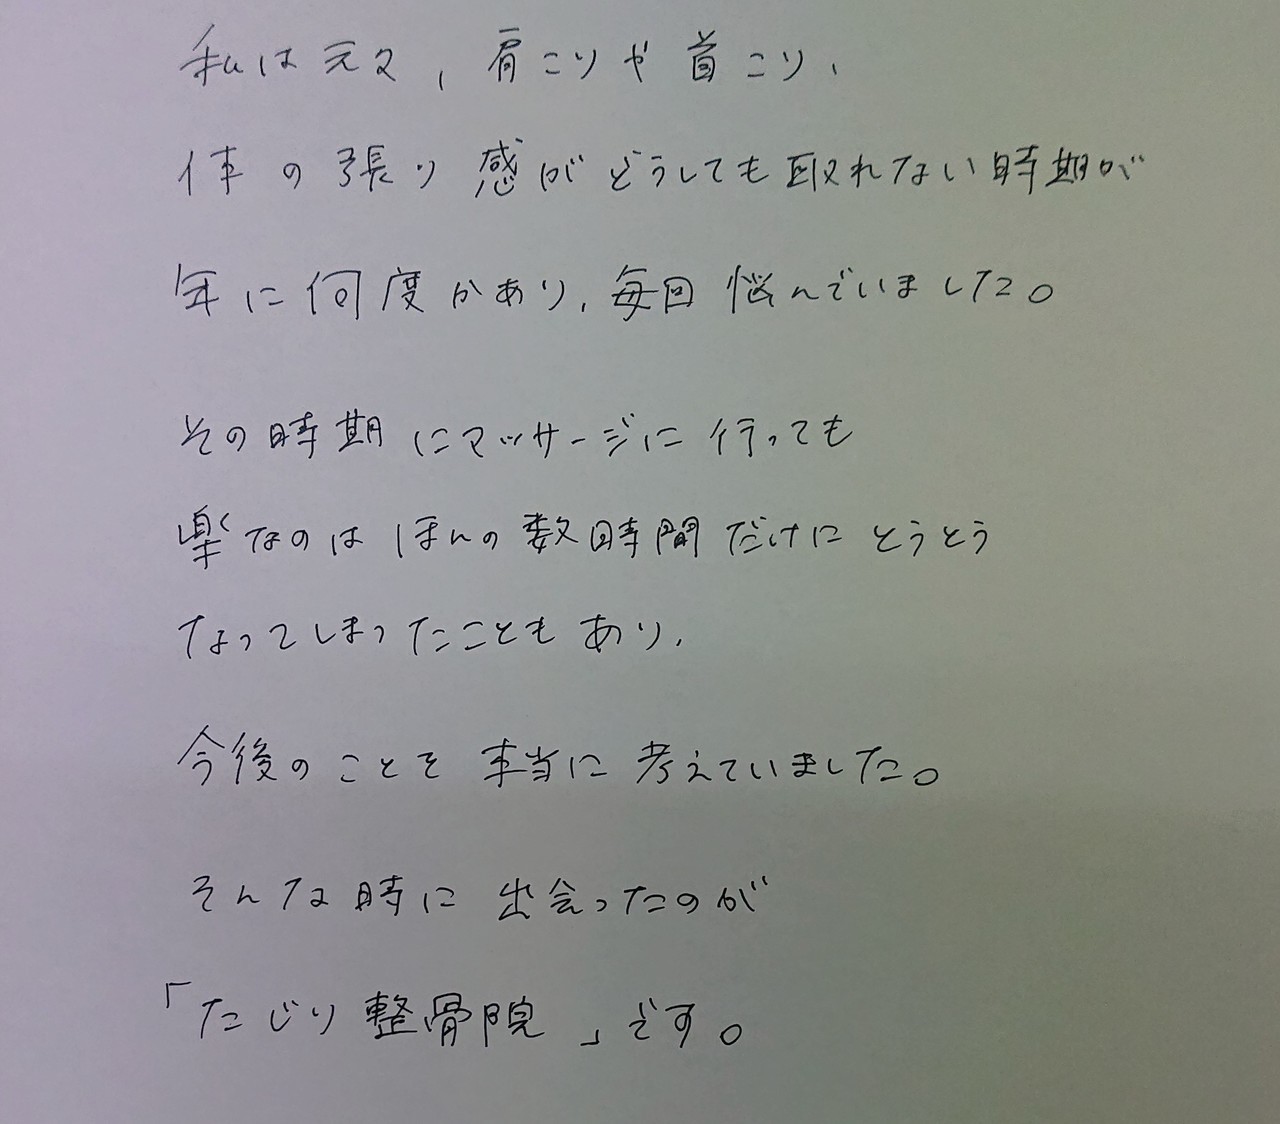 私は元々、肩こりや首こり、
体の張り感がどうしても取れない時期が
年に何度かあり、毎回悩んでいました。
その時期にマッサージに行っても
楽なのはほんの数時間だけにとうとう
なってしまったこともあり、
今後のことを本当に考えていました。
そんな時に出会ったのが
「たじり整骨院」です。